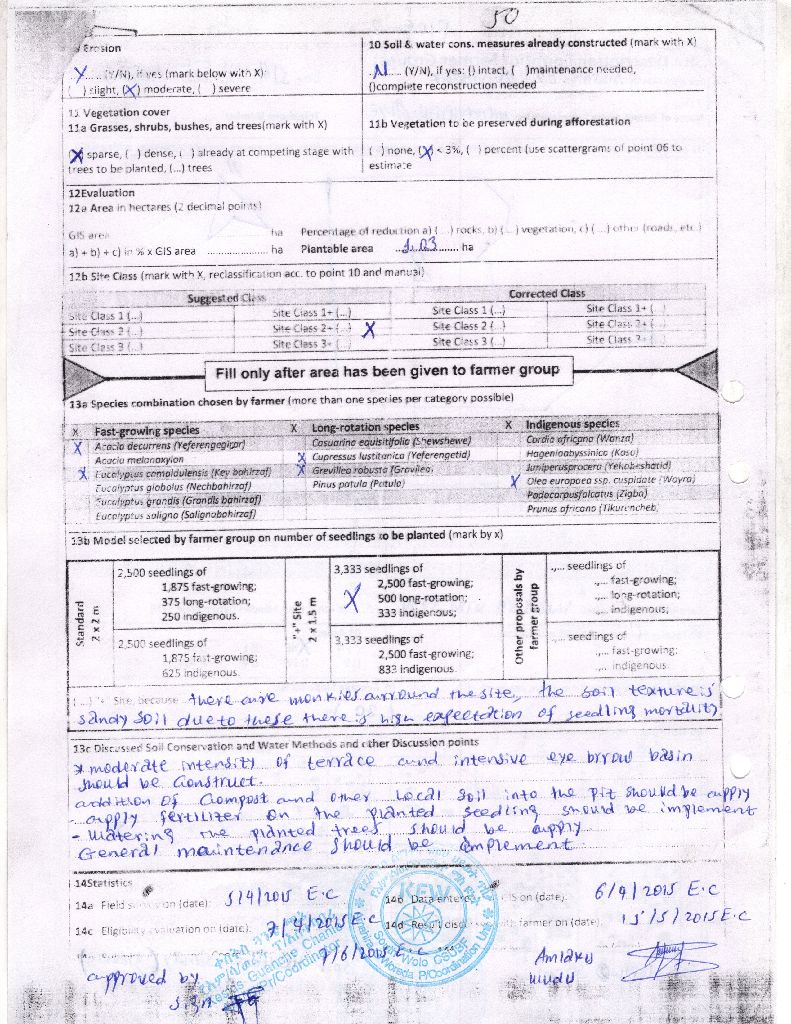 50
Erosion
10 Soil & water cons. measures already constructed (mark with X)
Y..... (Y/N), if yes (mark below with X):
.N.... (Y/N), if yes: () intact, ( )maintenance needed,
( ) slight, (X) moderate, ( ) severe
()complete reconstruction needed
11 Vegetation cover
11a Grasses, shrubs, bushes, and trees(mark with X)
11b Vegetation to be preserved during afforestation
(X) sparse, ( ) dense, ( ) already at competing stage with
trees to be planted, (...) trees
( ) none, (X) < 3%, ( ) percent (use scattergrams of point 06 to
estimate
12Evaluation
12a Area in hectares (2 decimal points)
GIS area ha Percentage of reduction a) (...) rocks, b) (...) vegetation, c) (...) other (roads, etc.)
a) + b) + c) in % x GIS area .................... ha Plantable area ...1.03........ ha
12b Site Class (mark with X, reclassification acc. to point 10 and manual)
Suggested Class
Corrected Class
Site Class 1 (...) Site Class 1+ (...) Site Class 1 (...) Site Class 1+ (...)
Site Class 2 (...) Site Class 2+ (...) X Site Class 2 (...) Site Class 2+ (...)
Site Class 3 (...) Site Class 3+ (...) Site Class 3 (...) Site Class 3+ (...)
Fill only after area has been given to farmer group
13a Species combination chosen by farmer (more than one species per category possible)
X Fast-growing species X Long-rotation species X Indigenous species
X Acacia decurrens (Yeferengegirar) Casuarina equisitifolia (Shewshewe) Cordia africana (Wanza)
Acacia melanoxylon X Cupressus lustitanica (Yeferengetid) Hageniaabyssinica (Koso)
X Eucalyptus camaldulensis (Key bahirzaf) X Grevillea robusta (Gravilea) Juniperusprocera (Yehabeshatid)
Eucalyptus globolus (Nechbahirzaf) Pinus patula (Patula) X Olea europaea ssp. cuspidate (Wayra)
Eucalyptus grandis (Grandis bahirzaf) Podocarpusfalcatus (Zigba)
Eucalyptus saligna (Salignabahirzaf) Prunus africana (Tikurencheb)
13b Model selected by farmer group on number of seedlings to be planted (mark by x)
Standard
2 x 2 m
2,500 seedlings of
1,875 fast-growing;
375 long-rotation;
250 indigenous.
2,500 seedlings of
1,875 fast-growing;
625 indigenous.
"+" Site
2 x 1.5 m
X
3,333 seedlings of
2,500 fast-growing;
500 long-rotation;
333 indigenous;
3,333 seedlings of
2,500 fast-growing;
833 indigenous.
Other proposals by
farmer group
..... seedlings of
..... fast-growing;
..... long-rotation;
..... indigenous;
..... seedlings of
..... fast-growing;
..... indigenous.
(...) "+ Site, because there are monkies arround the site, the soil texture is
sandy soil due to these there is high expectation of seedling mortality
13c Discussed Soil Conservation and Water Methods and other Discussion points
* moderate intensity of terrace and intensive eye brrow basin
should be construct.
addition of compost and other local soil into the pit should be apply
- apply fertilizer on the planted seedling should be implement
- watering the planted trees should be apply
General maintenance should be emplement
14Statistics
14a Field on (date): 5/4/2015 E.C 14b Data entere on (date): 6/4/2015 E.C
14c Eligibility evaluation on (date): 7/4/2015 E.C 14d farmer on (date), 15/5/2015 E.C
7/6/2015 E.C
KFW
approved by
sign
P/Coordinator